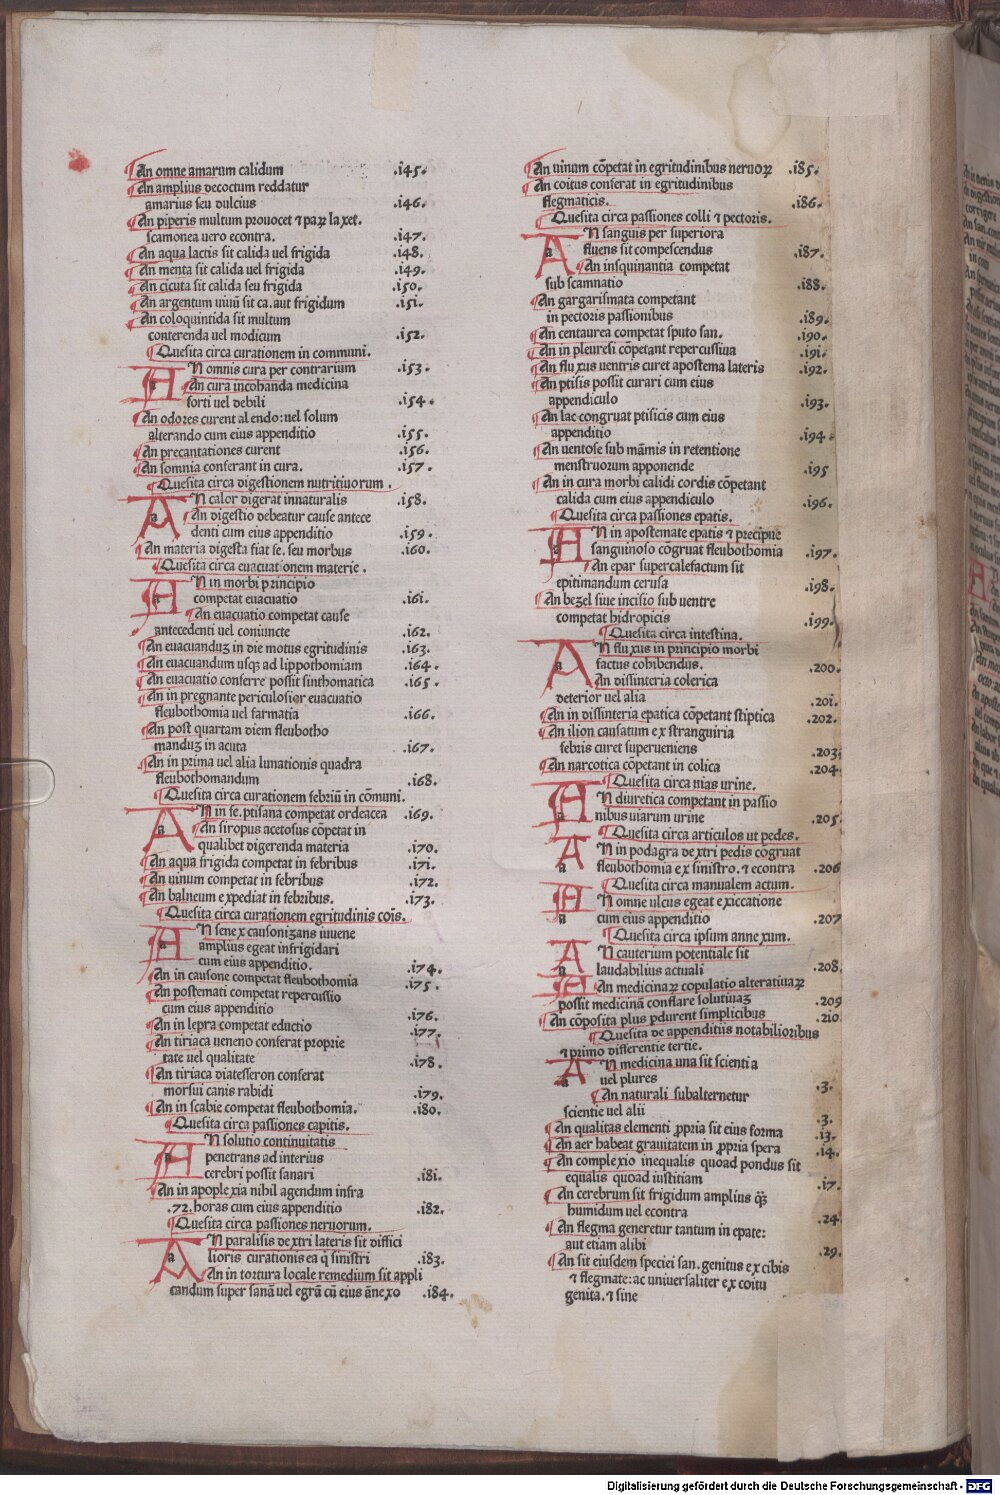 ¶An omne amarum calidum .i45.
¶An amplius decoctum reddatur
amarius seu dulcius .i46.
¶An piperis multum prouocet ⁊ paꝝ laxet.
scamonea uero econtra. .i47.
¶An aqua lactis sit calida uel frigida .i48.
¶An menta sit calida uel frigida .i49.
¶An cicuta sit calida seu frigida .i50.
¶An argentum uiuū sit ca. aut frigidum .i5i.
¶An coloquintida sit multum
conterenda uel modicum .i52.
¶Quesita circa curationem in communi.
AN omnis cura per contrarium .i53.
¶An cura incohanda medicina
forti uel debili .i54.
¶An odores curent alendo: uel solum
alterando cum eius appenditio .i55.
¶An precantationes curent .i56.
¶An somnia conferant in cura. .i57.
¶Quesita circa digestionem nutritiuorum.
AN calor digerat innaturalis .i58.
¶An digestio debeatur cause antece
denti cum eius appenditio .i59.
¶An materia digesta fiat se. seu morbus .i60.
¶Quesita circa euacuationem materie.
AN in morbi principio
competat euacuatio .i6i.
¶An euacuatio competat cause
antecedenti uel coniuncte .i62.
¶An euacuanduꝫ in die motus egritudinis .i63.
¶An euacuandum usqꝫ ad lippothomiam .i64.
¶An euacuatio conferre possit sinthomatica .i65.
¶An in pregnante periculosior euacuatio
fleubothomia uel farmatia .i66.
¶An post quartam diem fleubotho
manduꝫ in acuta .i67.
¶An in prima uel alia lunationis quadra
fleubothomandum .i68.
¶Quesita circa curationem febriū in cōmuni.
AN in fe. ptisana competat ordeacea .i69.
¶An siropus acetosus cōpetat in
qualibet digerenda materia .i70.
¶An aqua frigida competat in febribus .i7i.
¶An uinum competat in febribus .i72.
¶An balneum expediat in febribus. .i73.
¶Quesita circa curationem egritudinis cōis.
AN senex causonizans iuuene
amplius egeat infrigidari
cum eius appenditio. .i74.
¶An in causone competat fleubothomia .i75.
¶An postemati competat repercussio
cum eius appenditio .i76.
¶An in lepra competat eductio .i77.
¶An tiriaca ueneno conferat proprie
tate uel qualitate .i78.
¶An tiriaca diatesseron conferat
morsui canis rabidi .i79.
¶An in scabie competat fleubothomia. .i80.
¶Quesita circa passiones capitis.
AN solutio continuitatis
penetrans ad interius
cerebri possit sanari .i8i.
¶An in apoplexia nihil agendum infra
.72. horas cum eius appenditio .i82.
¶Quesita circa passiones neruorum.
AN paralisis dextri lateris sit diffici
lioris curationis ea q̄ sinistri .i83.
¶An in tortura locale remedium sit appli
candum super sanā uel egrā cū eius āne xo .i84.
¶An uinum cōpetat in egritudinibus neruoꝝ .i85.
¶An coitus conferat in egritudinibus
flegmaticis. .i86.
¶Quesita circa passiones colli ⁊ pectoris.
AN sanguis per superiora
fluens sit compescendus .i87.
¶An insquinantia competat
sub scamnatio .i88.
¶An gargarismata competant
in pectoris passionibus .i89.
¶An centaurea competat sputo san. .i90.
¶An in pleuresi cōpetant repercussiua .i9i.
¶An fluxus uentris curet apostema lateris .i92.
¶An ptisis possit curari cum eius
appendiculo .i93.
¶An lac congruat ptisicis cum eius
appenditio .i94.
¶An uentose sub māmis in retentione
menstruorum apponende .i95
¶An in cura morbi calidi cordis cōpetant
calida cum eius appendiculo .i96.
¶Quesita circa passiones epatis.
AN in apostemate epatis ⁊ precipue
sanguinoso cōgruat fleubothomia .i97.
¶An epar supercalefactum sit
epitimandum cerusa .i98.
¶An bezel siue incisio sub uentre
competat hidropicis .i99.
¶Quesita circa intestina.
AN fluxus in principio morbi
factus cohibendus. .200.
¶An dissinteria colerica
deterior uel alia .20i.
¶An in dissinteria epatica cōpetant stiptica .202.
¶An ilion causatum ex stranguiria
febris curet superueniens .203.
¶An narcotica cōpetant in colica .204.
¶Quesita circa uias urine.
AN diuretica competant in passio
nibus uiarum urine .205.
¶Quesita circa articulos ut pedes.
AN in podagra dextri pedis cōgruat
fleubothomia ex sinistro. ⁊ econtra .206
¶Quesita circa manualem actum.
AN omne ulcus egeat exiccatione
cum eius appenditio .207
¶Quesita circa ipsum annexum.
AN cauterium potentiale sit
laudabilius actuali .208.
¶An medicinaꝝ copulatio alteratiuaꝝ
possit medicinā conflare solutiuaꝫ .209
¶An cōposita plus ꝑdurent simplicibus .2i0.
¶Quesita de appenditiis notabilioribus
⁊ primo differentie tertie.
AN medicina una sit scientia
uel plures .3.
¶An naturali subalternetur
scientie uel alii .3.
¶An qualitas elementi ꝓpria sit eius forma .i3.
¶An aer habeat grauitatem in ꝓpria spera .i4.
¶An complexio inequalis quoad pondus sit
equalis quoad iustitiam .i7.
¶An cerebrum sit frigidum amplius qꝫ̄
humidum uel econtra .24.
¶An flegma generetur tantum in epate:
aut etiam alibi .29.
¶An sit eiusdem speciei san. genitus ex cibis
⁊ flegmate: ac uniuersaliter ex coitu
genita. ⁊ sine
Digitalisierung gefördert durch die Deutsche Forschungsgemeinschaft - DFG